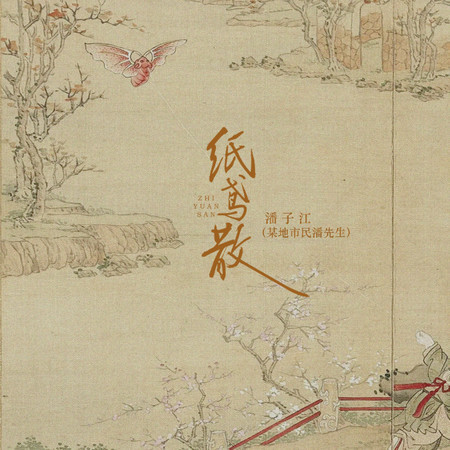 纸鸢散
ZHI
YUAN
SAN
潘子江
(某地市民潘先生)